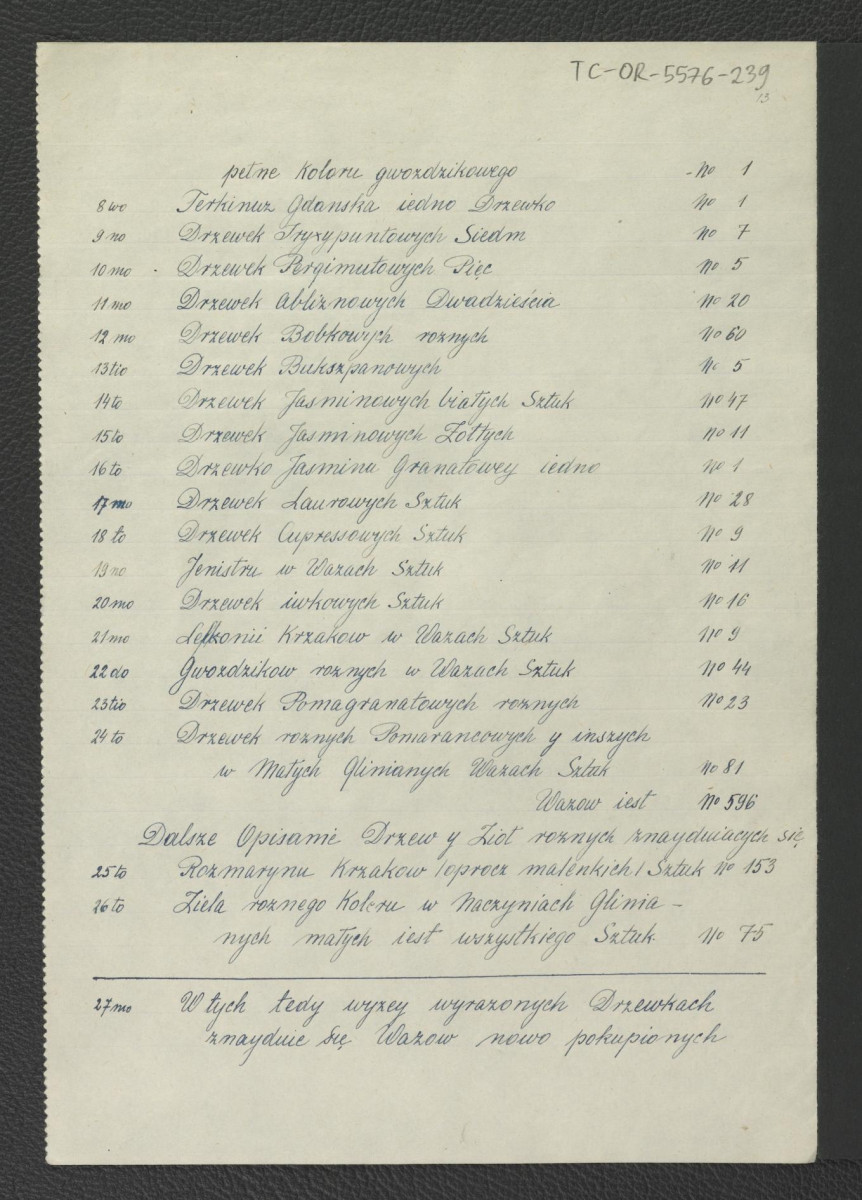 TC-OR-5576-239
13
pełne koloru gwozdzikowego - No 1
8wo Terkinuz Gdanska iedno Drzewko No 1
9no Drzewek Tryzypuntowych Siedm No 7
10mo Drzewek Pergimutowych Pięc No 5
11mo Drzewek Abliznowych Dwadzieścia No 20
12mo Drzewek Bobkowych roznych No 60
13tio Drzewek Bukszpanowych No 5
14to Drzewek Jasminowych białych Sztuk No 47
15to Drzewek Jasminowych Zółtych No 11
16to Drzewko Jasminu Granatowey iedno No 1
17mo Drzewek Laurowych Sztuk No 28
18to Drzewek Cupressowych Sztuk No 9
19no Jenistru w Wazach Sztuk No 11
20mo Drzewek iwkowych Sztuk No 16
21mo Lefkonii Krzakow w Wazach Sztuk No 9
22do Gwozdzikow roznych w Wazach Sztuk No 44
23tio Drzewek Pomagranatowych roznych No 23
24to Drzewek roznych Pomarancowych y inszych
w Małych Glinianych Wazach Sztuk No 81
Wazow iest No 596
Dalsze Opisanie Drzew y Ziół roznych znayduiacych się
25to Rozmarynu Krzakow /oprocz malenkich/ Sztuk No 153
26to Ziela roznego Koloru w Naczyniach Glinia-
nych małych iest wszystkiego Sztuk No 75
27mo W tych tedy wyzey wyrazonych Drzewkach
znayduie się Wazow nowo pokupionych